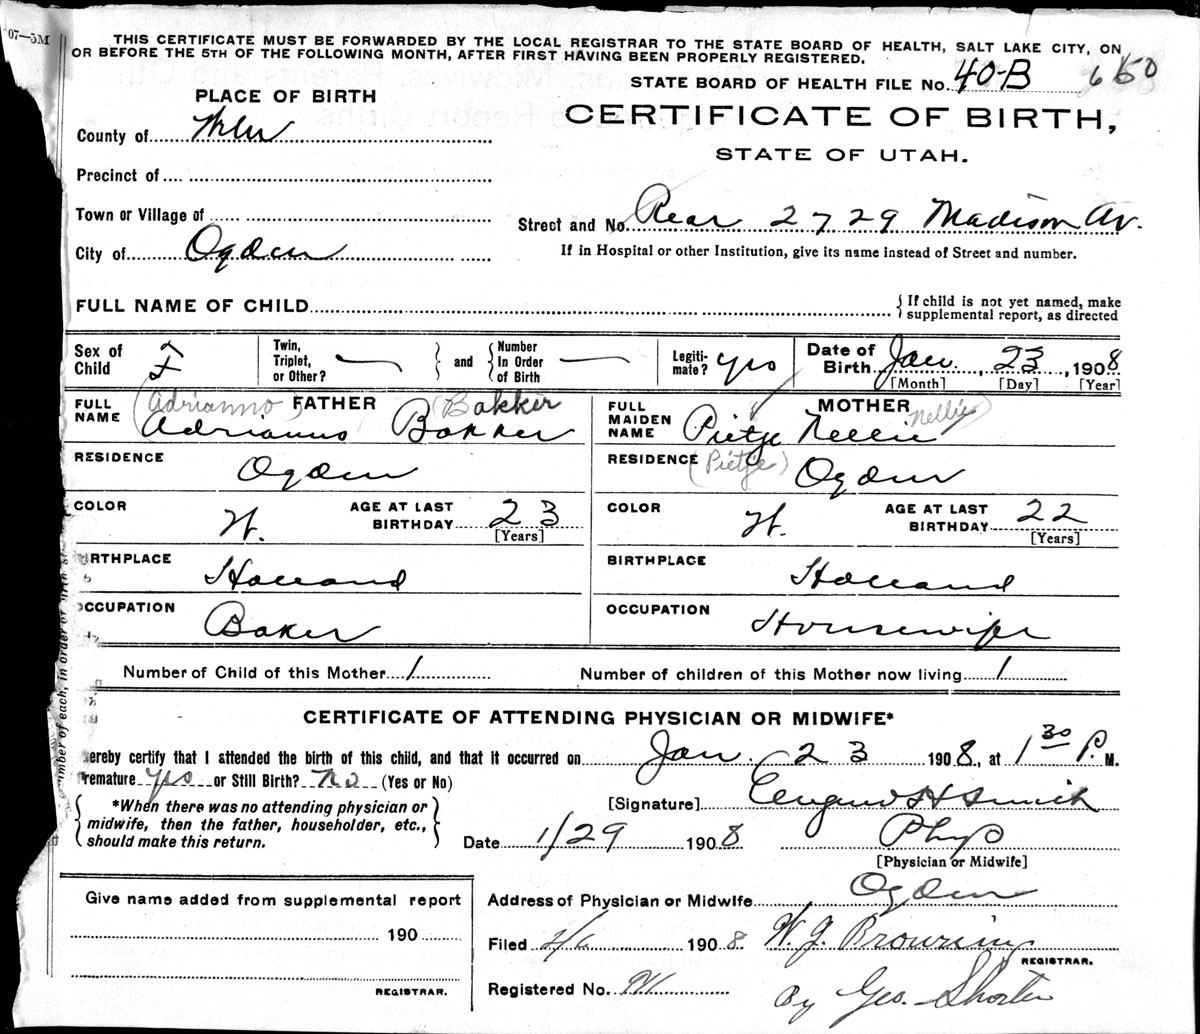 07—5M
THIS CERTIFICATE MUST BE FORWARDED BY THE LOCAL REGISTRAR TO THE STATE BOARD OF HEALTH, SALT LAKE CITY, ON
OR BEFORE THE 5TH OF THE FOLLOWING MONTH, AFTER FIRST HAVING BEEN PROPERLY REGISTERED.
STATE BOARD OF HEALTH FILE No. 40-B
PLACE OF BIRTH
CERTIFICATE OF BIRTH,
County of
STATE OF UTAH.
Precinct of
Town or Village of
Street and No. Rear 2729 Madison Av.
City of Ogden
If in Hospital or other Institution, give its name instead of Street and number.
FULL NAME OF CHILD
{ If child is not yet named, make
supplemental report, as directed
Sex of Child F
Twin, Triplet, or Other? —
and
Number In Order of Birth —
Legiti- mate? yes
Date of Birth Jan. 23, 1908
[Month] [Day] [Year]
FULL NAME FATHER
(Adrianno) (Bakker
Adrianus Bakker
FULL MAIDEN NAME MOTHER
Nellie)
Pietje Nellie
RESIDENCE Ogden
RESIDENCE (Pietje) Ogden
COLOR W.
AGE AT LAST BIRTHDAY 23
[Years]
COLOR W.
AGE AT LAST BIRTHDAY 22
[Years]
BIRTHPLACE Holland
BIRTHPLACE Holland
OCCUPATION Baker
OCCUPATION Housewife
Number of Child of this Mother 1
Number of children of this Mother now living 1
CERTIFICATE OF ATTENDING PHYSICIAN OR MIDWIFE*
hereby certify that I attended the birth of this child, and that it occurred on Jan. 23 1908, at 1 30 P. M.
remature yes or Still Birth? No (Yes or No)
{ *When there was no attending physician or
midwife, then the father, householder, etc.,
should make this return. }
[Signature] H Smith
Date 1/29 1908
Phys
[Physician or Midwife]
Give name added from supplemental report
190
REGISTRAR.
Address of Physician or Midwife Ogden
Filed 2/6 1908 W. J. Browning
REGISTRAR.
Registered No.
By Geo. Shorten
number of each, in order of birth s